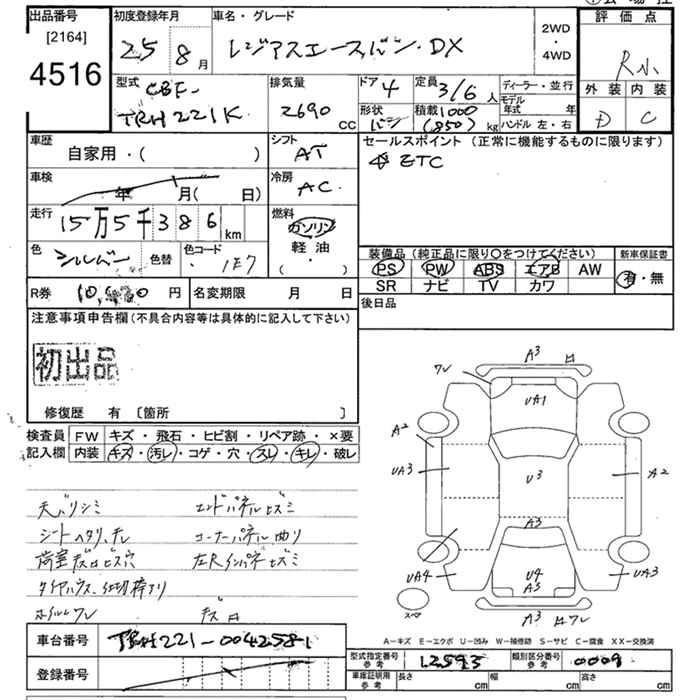 出品番号
[2164]
4516
初度登録年月
25 8月
車名・グレード
レジアスエースバン・DX
2WD
・
4WD
評価点
R小
外装 内装
D C
型式
CBF-
TRH221K
排気量
2690 CC
ドア 4
形状 バン
定員 3/6 人
積載 1000 (850) kg
ディーラー・並行
モデル年式 年
ハンドル 左・右
車歴
自家用・( )
シフト
AT
セールスポイント(正常に機能するものに限ります)
ETC
車検
年 月( 日)
冷房
AC
走行
15万5千386km
燃料
ガソリン
軽油
・
( )
色 シルバー 色替 色コード 1E7
装備品(純正品に限り○をつけてください) 新車保証書
PS PW ABS エアB AW 有・無
SR ナビ TV カワ
R券 円 名変期限 月 日
後日品
注意事項申告欄(不具合内容等は具体的に記入して下さい)
初出品
修復歴 有 〔箇所 〕
検査員 FW キズ・飛石・ヒビ割・リペア跡・×要
記入欄 内装 キズ・汚レ・コゲ・穴・スレ・キレ・破レ
天バリシミ エンドパネルヒズミ
シートヘタリ、キレ コーナーパネル曲り
荷室キズロビス穴 左Rインパネヒズミ
タイヤハウス、
ホイルワレ キズロ
A3
ワレ
UA1
A2
UA3
U3
A2
A3
UA4
U4
A3
UA3
A3
ワレ
スペア
A-キズ E-エクボ U-凹み W-補修跡 S-サビ C-腐食 XX-交換済
車台番号 TRH221-0042581
登録番号
型式指定番号 参考 12593 類別区分番号 参考 0009
車庫証明用 参考 長さ cm 幅 cm 高さ cm